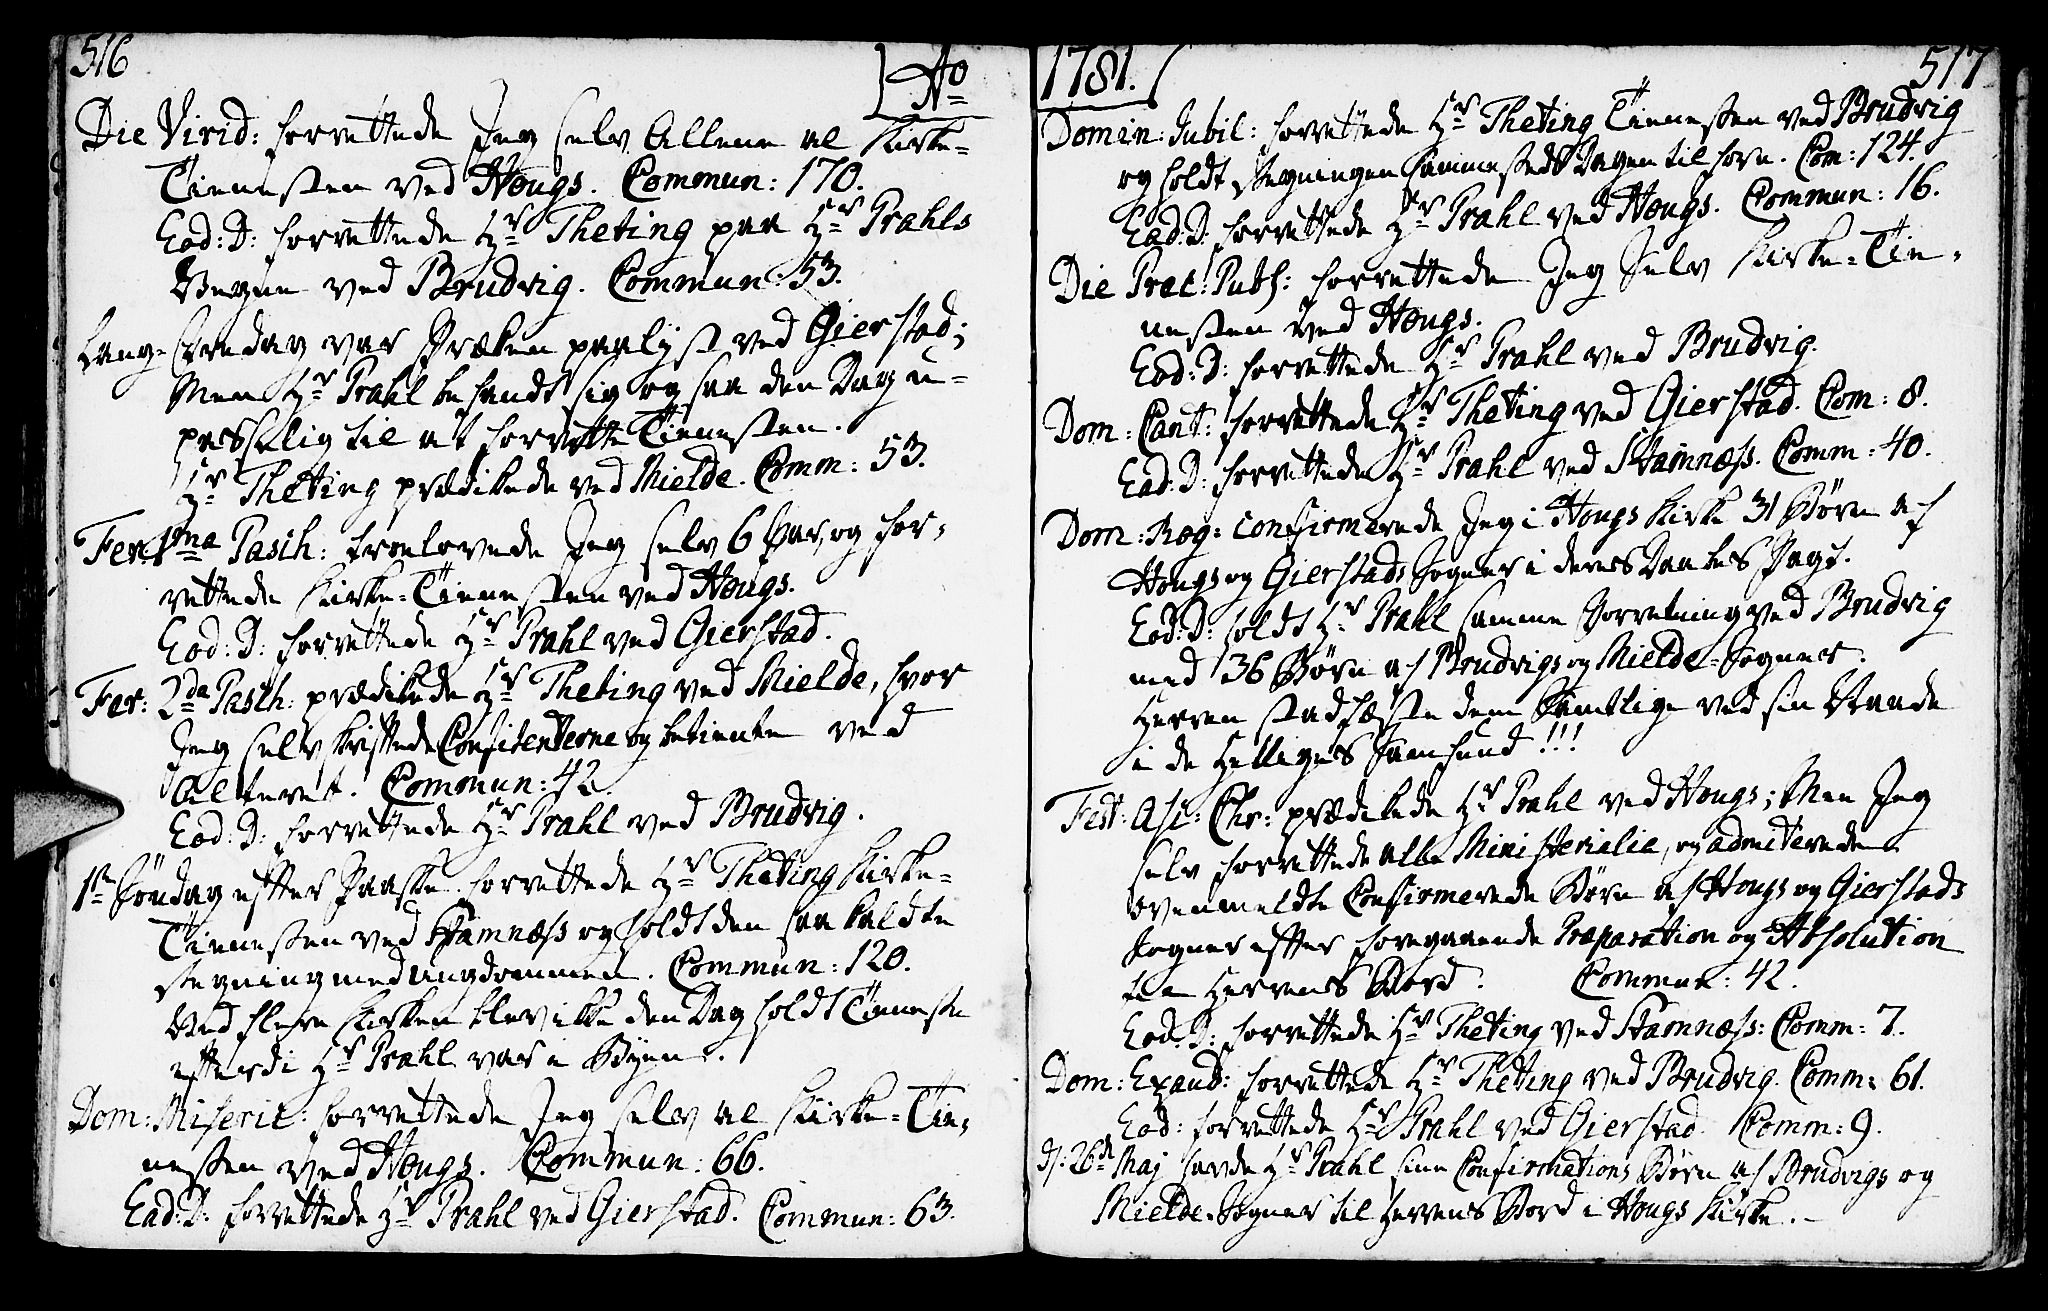 516
Ao
Die Virid: forrettede Jeg selv Allene al Kirke-
Tienesten ved Hougs. Commun: 170.
Eod: D: forrettede Hr Theting paa Hr Prahls
Vegne ved Brudvig. Commun: 53.
Lang-Fredag var Præken paalyst ved Gierstad;
Men Hr Prahl befandt sig ogsaa den Dag u-
passelig til at forrette Tienesten.
Hr Theting prædikede ved Mielde. Comm: 53.
Fer: 1ma Pasch: troelovede Jeg selv 6 Par, og for-
rettede Kirke-Tienesten ved Hougs.
Eod: D: forrettede Hr Prahl ved Gierstad.
Fer: 2da Pasch: prædikede Hr Theting ved Mielde, hvor
Jeg selv skriftede Confitenterne og betiente ved
Alteret. Commun: 42.
Eod: D: forrettede Hr Prahl ved Brudvig.
1ste Søndag efter Paaske forrettede Hr Theting Kirke-
Tienesten ved Stamnæss og holdt den saa kaldte
Stegning med Ungdommen. Commun: 120.
Ved flere Kirker blev ikke den Dag holdt Tieneste
efterdi Hr Prahl var i Byen.
Dom: Miseric: forrettede Jeg selv al Kirke-Tie-
nesten ved Hougs. Commun: 66.
Ead: D: forrettede Hr Prahl ved Gierstad. Commun: 63.
1781.
517
Domin: Jubil: forrettede Hr Theting Tienesten ved Brudvig
og holdt Stegningen sammesteds Dagen til forn. Com: 124.
Ead: D: forrettede Hr Prahl ved Hougs. Commun: 16.
Die Prec: Publ: forrettede Jeg Selv Kirke-Tie-
nesten ved Hougs.
Eod: D: forrettede Hr Prahl ved Brudvig.
Dom: Cant: forrettede Hr Theting ved Gierstad. Com: 8.
Ead: D: forrettede Hr Prahl ved Stamnæss. Comm: 40.
Dom: Rog: confirmerede Jeg i Hougs Kirke 31 Børn af
Hougs og Gierstads Sogner i deres Daabes Pagt.
Eod: D: holdt Hr Prahl samme Forretning ved Brudvig
med 36 Børn af Brudvigs og Mielde-Sogner.
Herren stadfæste dem Samtlige ved sin Naade
i de Helliges Samfund!!!
Fest: Asc: Chr: prædikede Hr Prahl ved Hougs; Men Jeg
selv forrettede alle Ministerialia, og admiterede
ovenmeldte Confirmerede Børn af Hougs og Gierstads
Sogner efter foregaaende Præparation og Absolution
til Herrens Bord. Commun: 42.
Eod. D: forrettede Hr Theting ved Stamnæss: Comm: 7.
Dom: Exaud: forrettede Hr Theting ved Brudvig. Comm: 61.
Eod: forrettede Hr Prahl ved Gierstad. Comm: 9.
d: 26de Maj havde Hr Prahl sine Confirmations Børn af Brudvigs og
Mielde-Sogner til Herrens Bord i Hougs Kirke.